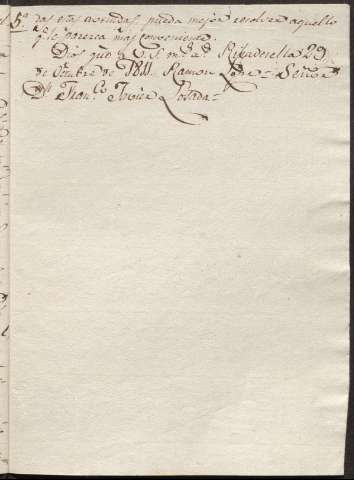 das estas noticias, pueda mejor resolver aquello
q.e le parezca mas conveniente.
Dios gu.e a V.S. m.s a.s Ribadesella 29
de Octubre de 1811. Ramon = Señor
D.n Fran.co Javier Losada =